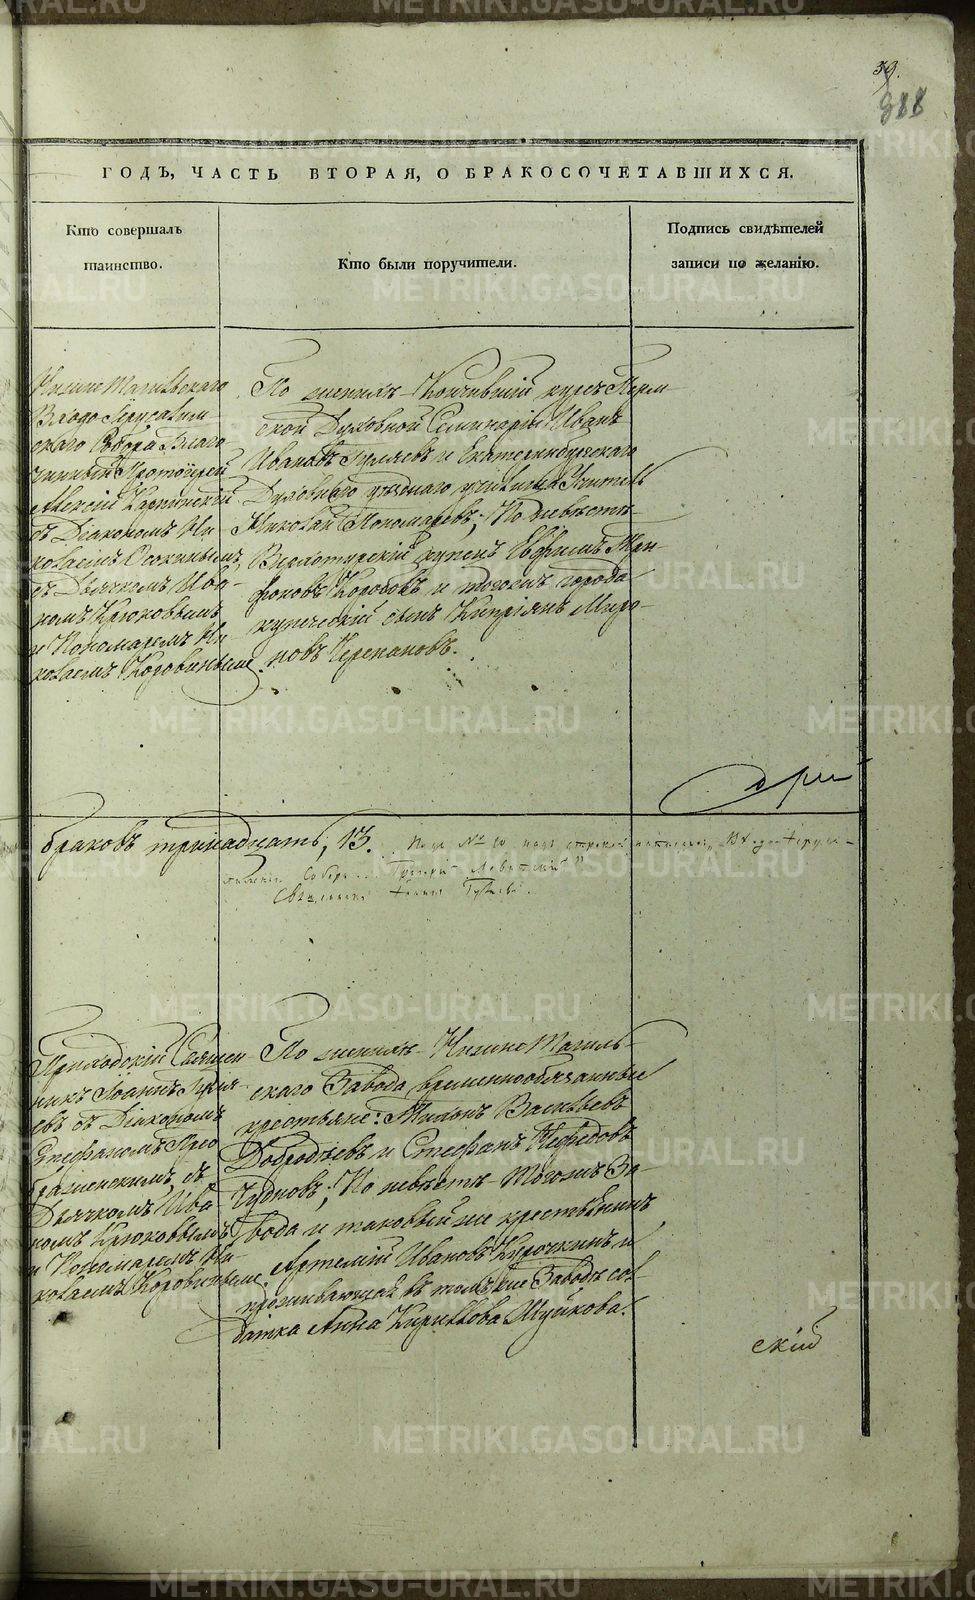 39.
388
ГОДЪ, ЧАСТЬ ВТОРАЯ, О БРАКОСОЧЕТАВШИХСЯ.
Кто совершалъ
таинство.
Кто были поручители.
Подпись свидѣтелей
записи по желанію.
Нижне Тагильскаго
Входо Іерусалим-
скаго Собора Благо
чинный Протоіерей
Алексій Карпинскій
съ Діакономъ Ни-
колаемъ Осокинымъ,
съ Дьячкомъ Ива-
номъ Крюковымъ
и Пономаремъ Ни-
колаемъ Коровинымъ.
По женихѣ Кончившій курсъ Перм
ской Духовной Семинаріи Иванъ
Ивановъ Гуляевъ и Екатеринбургскаго
Духовнаго уѣзднаго училища Учитель
Николай Пономаревъ; По невѣстѣ
Верхотурскій купецъ Евфимъ
Коробовъ и тогожъ города
купеческій сынъ Кипріянъ Миро-
новъ Черепановъ.
браковъ тринадцать, 13.
Собора
Священникъ
Приходскій Священ
никъ Іоаннъ Гуля-
евъ съ Діакономъ
Стефаномъ Прео
браженскимъ, съ
Дьячкомъ Ива
номъ Крюковымъ
и Пономаремъ Ни-
колаемъ Коровинымъ.
По женихѣ Нижне Тагиль-
скаго Завода временнообязанные
крестьяне: Васильевъ
Добродѣевъ и Стефанъ Нефедовъ
Чудновъ; По невѣстѣ Тогожъ За-
вода и таковый же крестьянинъ
Артемій Ивановъ Курочкинъ и
проживающая въ томъ же Заводѣ сол-
датка Анна Кириллова Шуйкова.
скій
METRIKI.GASO-URAL.RU